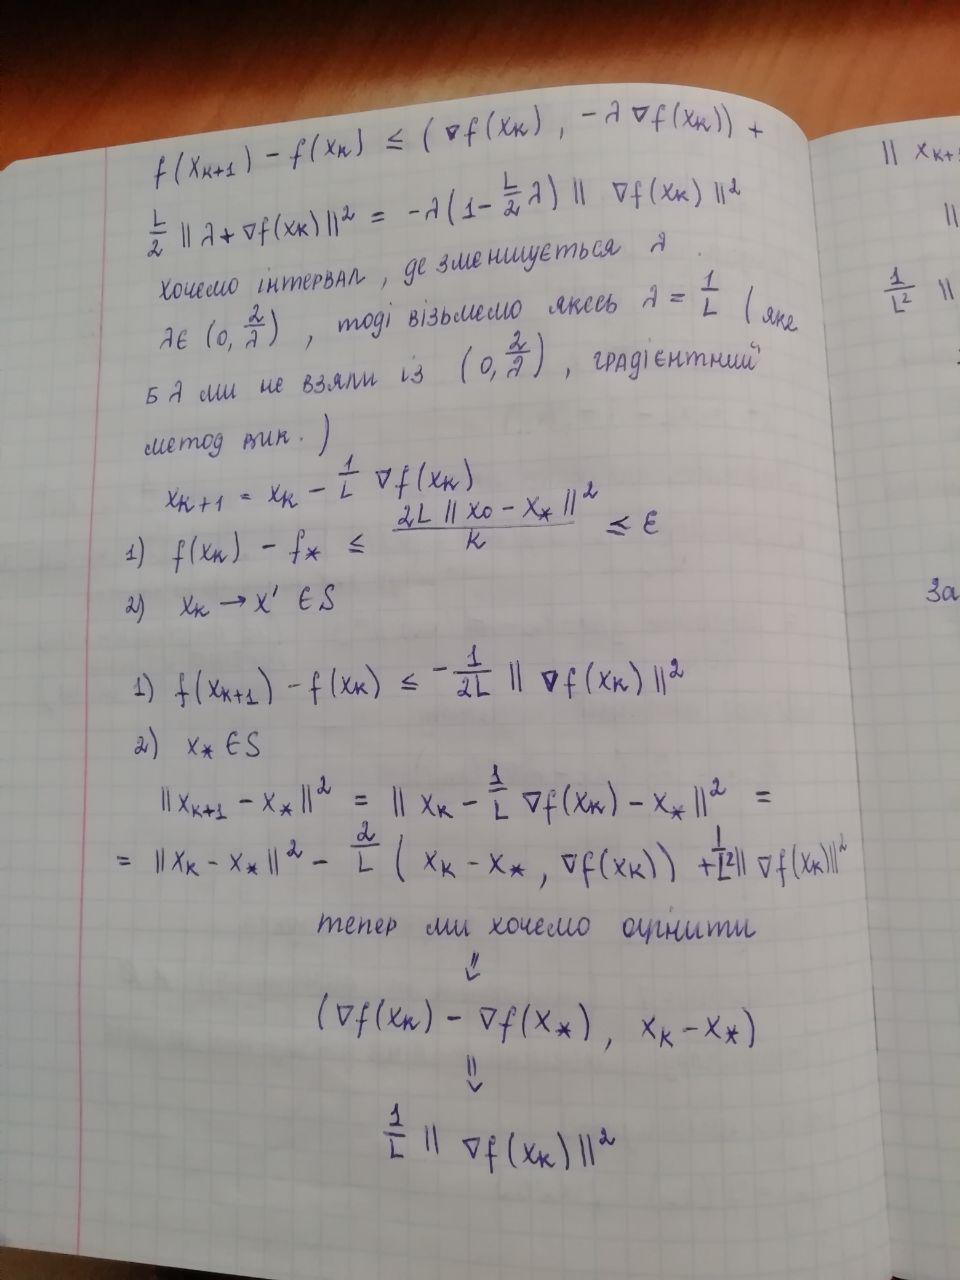 f(xₖ₊₁) - f(xₖ) ≤ (∇f(xₖ), -λ∇f(xₖ)) +
L/2 ||λ+∇f(xₖ)||² = -λ(1 - L/2 λ) || ∇f(xₖ) ||²
хочемо інтервал, де зменшується λ.
λ∈ (0, 2/λ), тоді візьмемо якесь λ = 1/L (яке
б λ ми не взяли із (0, 2/λ), градієнтний
метод вик.)
xₖ₊₁ = xₖ - 1/L ∇f(xₖ)
1) f(xₖ) - f* ≤ 2L || x₀ - x* ||² / k ≤ ε
2) xₖ → x' ∈ S
1) f(xₖ₊₁) - f(xₖ) ≤ - 1/2L || ∇f(xₖ) ||²
2) x* ∈ S
|| xₖ₊₁ - x* ||² = || xₖ - 1/L ∇f(xₖ) - x* ||² =
= || xₖ - x* ||² - 2/L ( xₖ - x*, ∇f(xₖ)) + 1/L² || ∇f(xₖ) ||²
тепер ми хочемо оцінити
⇓
(∇f(xₖ) - ∇f(x*), xₖ - x*)
⇓
1/L || ∇f(xₖ) ||²
|| xₖ₊
||
1/L² ||
За